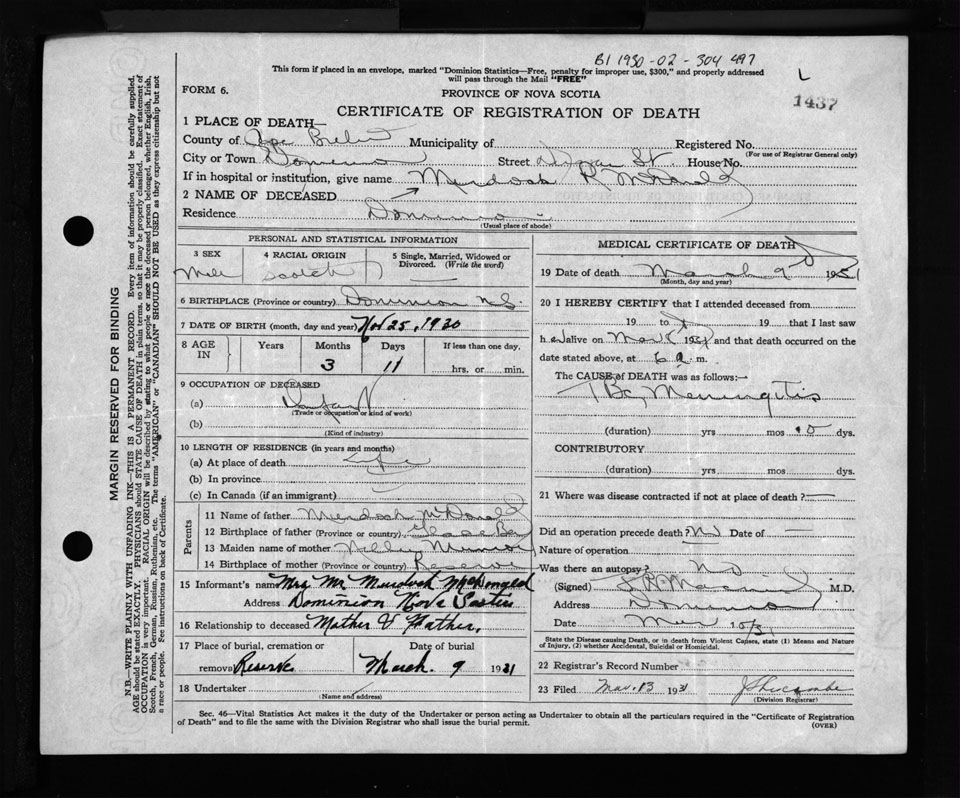 B1 1930-02-304497
This form if placed in an envelope, marked "Dominion Statistics—Free, penalty for improper use, $300," and properly addressed
will pass through the Mail "FREE"
L
1437
FORM 6.
PROVINCE OF NOVA SCOTIA
CERTIFICATE OF REGISTRATION OF DEATH
1 PLACE OF DEATH—
County of Cape Breton Municipality of Registered No.
(For use of Registrar General only)
City or Town Dominion Street St. House No.
If in hospital or institution, give name Murdoch R McDonald
2 NAME OF DECEASED
Residence Dominion
(Usual place of abode)
PERSONAL AND STATISTICAL INFORMATION
3 SEX Male
4 RACIAL ORIGIN Scotch
5 Single, Married, Widowed or Divorced. (Write the word)
6 BIRTHPLACE (Province or country) Dominion N.S.
7 DATE OF BIRTH (month, day and year) Nov 25, 1930
8 AGE IN Years Months 3 Days 11 If less than one day. hrs. or min.
9 OCCUPATION OF DECEASED
(a) Infant
(Trade or occupation or kind of work)
(b)
(Kind of industry)
10 LENGTH OF RESIDENCE (in years and months)
(a) At place of death Life
(b) In province
(c) In Canada (if an immigrant)
Parents
11 Name of father Murdoch McDonald
12 Birthplace of father (Province or country)
13 Maiden name of mother
14 Birthplace of mother (Province or country) Reserve
15 Informant's name Mrs Mr Murdock McDonald
Address Dominion Nova Scotia
16 Relationship to deceased Mother & Father.
17 Place of burial, cremation or removal Reserve
Date of burial March 9 1931
18 Undertaker
(Name and address)
MEDICAL CERTIFICATE OF DEATH
19 Date of death March 9 1931
(Month, day and year)
20 I HEREBY CERTIFY that I attended deceased from
19 to 19 that I last saw
h alive on 1931 and that death occurred on the
date stated above, at 6 a m.
The CAUSE of DEATH was as follows:—
TBc Meningitis
(duration) yrs mos 10 dys.
CONTRIBUTORY
(duration) yrs mos dys.
21 Where was disease contracted if not at place of death?
Did an operation precede death? No Date of
Nature of operation
Was there an autopsy? No
(Signed) M.D.
Address Dominion
Date Mar 10/31
State the Disease causing Death, or in death from Violent Causes, state (1) Means and Nature
of Injury, (2) whether Accidental, Suicidal or Homicidal.
22 Registrar's Record Number
23 Filed Mar. 13 1931
(Division Registrar)
Sec. 46—Vital Statistics Act makes it the duty of the Undertaker or person acting as Undertaker to obtain all the particulars required in the "Certificate of Registration
of Death" and to file the same with the Division Registrar who shall issue the burial permit.
(OVER)
MARGIN RESERVED FOR BINDING
N.B.—WRITE PLAINLY WITH UNFADING INK—THIS IS A PERMANENT RECORD. Every item of information should be carefully supplied.
AGE should be stated EXACTLY. PHYSICIANS should STATE CAUSE OF DEATH in plain terms, so that it may be properly classified. Exact statement of
OCCUPATION is very important. RACIAL ORIGIN will be described by stating to what people or race the deceased person belonged, whether English, Irish,
Scotch, French, German, Russian, Ruthenian, etc. The terms "AMERICAN" or "CANADIAN" SHOULD NOT BE USED as they express citizenship but not
a race or people. See instructions on back of Certificate.